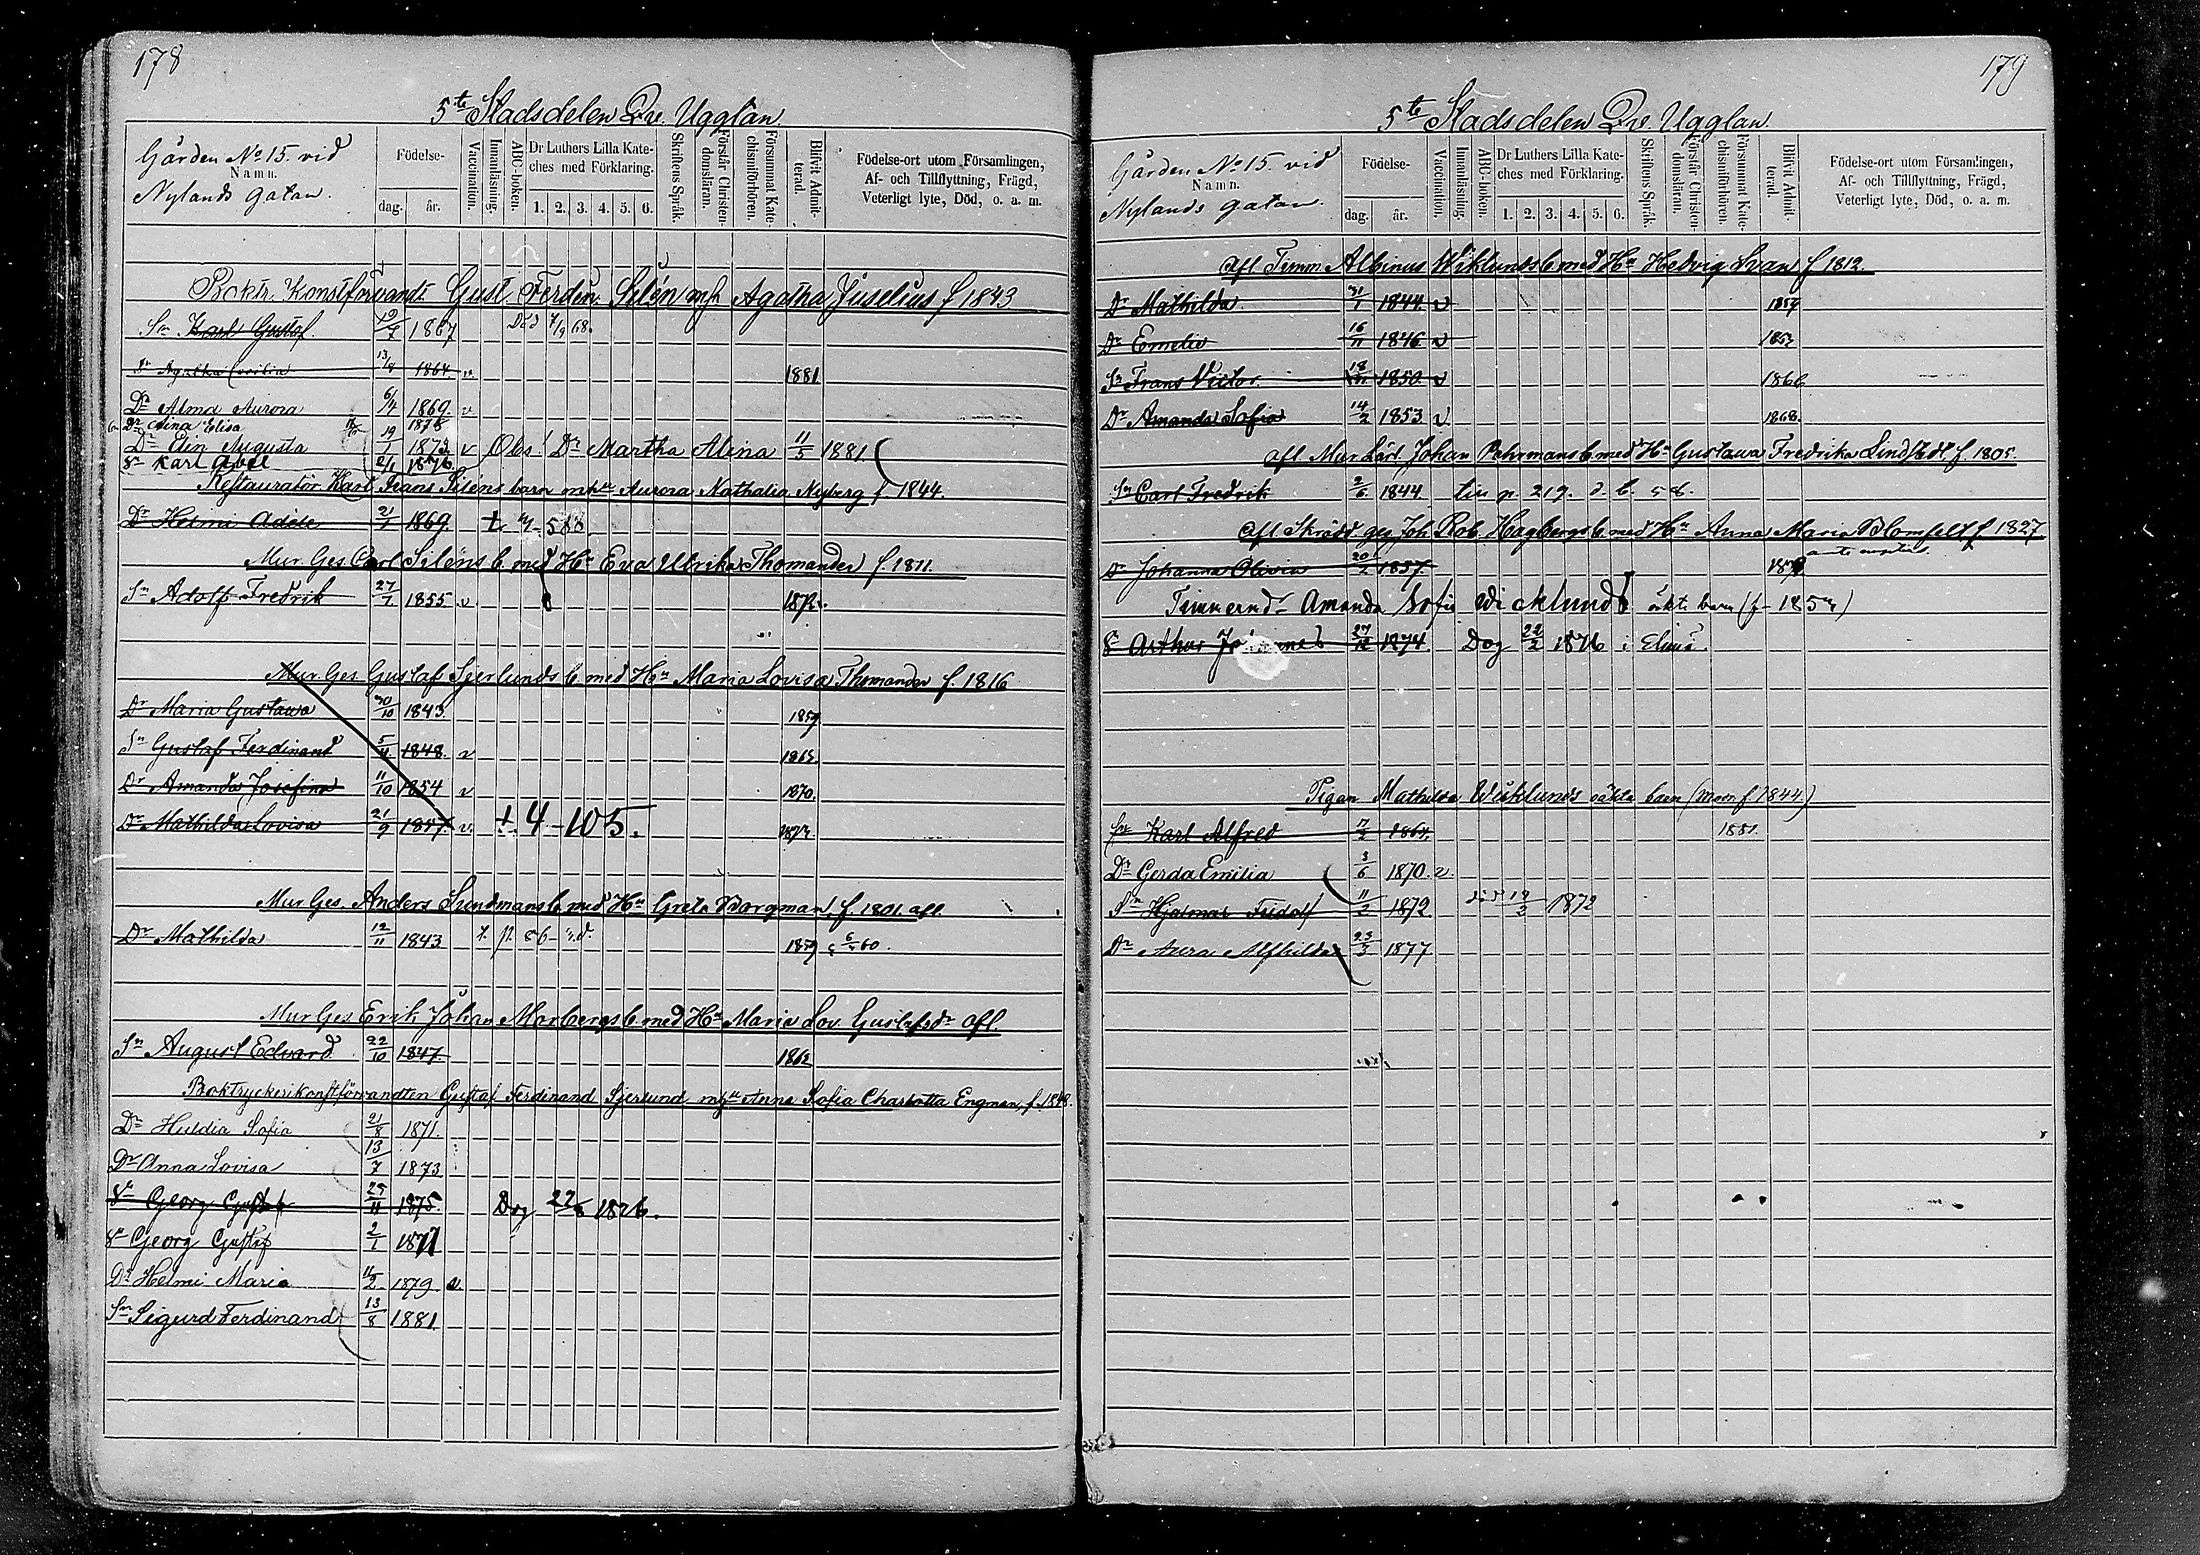 178
5te Stadsdelen Qv. Ugglan
Gården No 15. vid
Namn.
Nylands gatan.
Födelse-
dag.
år.
Vaccination.
Innanläsning.
ABC-boken.
Dr Luthers Lilla Kate-
ches med Förklaring.
1. 2. 3. 4. 5. 6.
Skriftens Språk.
Förstår Christen-
domsläran.
Försummat Kate-
chismiförhören.
Blifvit Admit-
terad.
Födelse-ort utom Församlingen,
Af- och Tillflyttning, Frägd,
Veterligt lyte, Död, o. a. m.
Boktr. Konstförvandt. Gust. Ferdin. Silén mh Agatha Juselius f 1843
Sn Karl Gustaf 1867 Död 7/9 68.
Dr Agatha Cecilia 13/8 1864. v 1881
Dr Alma Aurora 6/4 1869. v
Dr Aina Elisa 1878
Dr Elin Augusta 19/1 1873 v Obs! Dr Martha Alina 11/5 1881
Sn Karl Abel 2/1 1876
Restauratör Karl Frans Siléns barn mhu Aurora Nathalia Nyberg f. 1844.
Dr Helmi Adéle 21/1 1869. t. 4-588
Mur. Ges. Carl Siléns b. med Hu Eva Ulrika Thomander f. 1811.
Sn Adolf Fredrik 27/7 1855 v 1872.
Mur. Ges. Gustaf Sjerlunds b med Hu Maria Lovisa Thomander f. 1816
Dr Maria Gustawa 30/10 1843. 1859
Sn Gustaf Ferdinand 5/4 1848. v 1865
Dr Amanda Josefina 11/10 1854 v 1870.
Dr Mathilda Lovisa 21/9 1857. v. t. 4-105.
Mur Ges. Anders Sundmans b med Hu Greta Borgman, f. 1801. afl.
Dr Mathilda 12/11 1843 t. p. 86 1859 60.
Mur Ges. Erik Johan Morbergs b med Hu Maria Lov. Gustafsdr afl.
Sn August Edvard 22/10 1847. 1862
Boktryckerikonstförvandten Gustaf Ferdinand Sjerlund mhu Anna Sofia Charlotta Engman, f. 1848.
Dr Huldia Sofia 21/8 1871.
Dr Anna Lovisa 13/7 1873
Sn Georg Gustaf 25/11 1875. Dog 22/8 1876.
Sn Georg Gustaf 2/1 1877
Dr Helmi Maria 11/2 1879 v
Sn Sigurd Ferdinand 13/8 1881
179
5te Stadsdelen Qv. Ugglan.
Gården No 15. vid
Namn.
Nylands gatan.
Födelse-
dag.
år.
Vaccination.
Innanläsning.
ABC-boken.
Dr Luthers Lilla Kate-
ches med Förklaring.
1. 2. 3. 4. 5. 6.
Skriftens Språk.
Förstår Christen-
domsläran.
Försummat Kate-
chismiförhören.
Blifvit Admit-
terad.
Födelse-ort utom Församlingen,
Af- och Tillflyttning, Frägd,
Veterligt lyte, Död, o. a. m.
Afl. Timm. Albinus Wiklunds b med Hu Hedvig Svan f 1812.
Dr Mathilda 31/1 1844. v 1859
Dr Emelie 16/11 1846 v
Sn Frans Victor. 1850. v 1866
Dr Amanda Sofia 14/2 1853. v 1868.
afl. Mur. Lärl. Johan Pehrmans b med Hu Gustawa Fredrika Lindstedt f. 1805.
Sn Carl Fredrik 2/6 1844. till p. 219. d. b. 58.
Afl. Skrädd. ges. Joh. Rob. Hagbergs b. med Hu Anna Maria Blomfelt f 1827
Dr Johanna Olivia 20/2 1857.
Timmermd. Amanda Sofia Wicklunds oäkt. barn
Sn Arthur Johannes 27/12 1874. Dog 22/2 1876 i Elimä.
Pigan Mathilda Wiklunds oäkta barn (Modr. f 1844)
Sn Karl Alfred 1864. 1881.
Dr Gerda Emilia 3/6 1870. v
Sn Hjalmar Fridolf 11/2 1872 1872
Dr Aura Alfhilda 23/3 1877